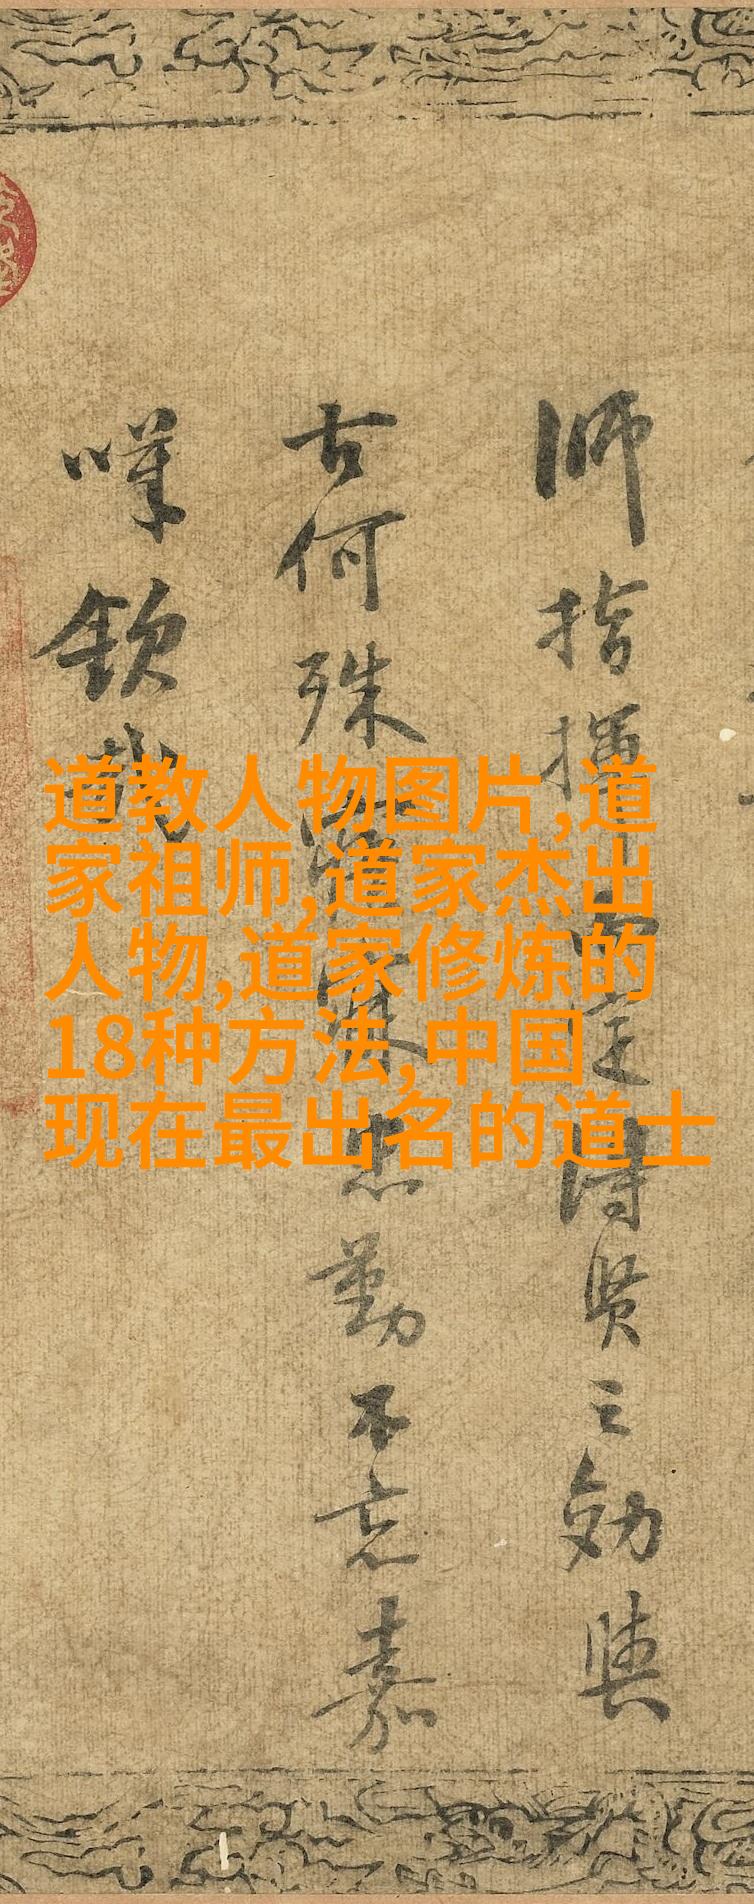 师指挥而定得贤之効與
古何殊
忠勤不忘嘉
嘆欽哉
道教人物图片,道
家祖师,道家杰出
人物,道家修炼的
18种方法,中国
现在最出名的道士